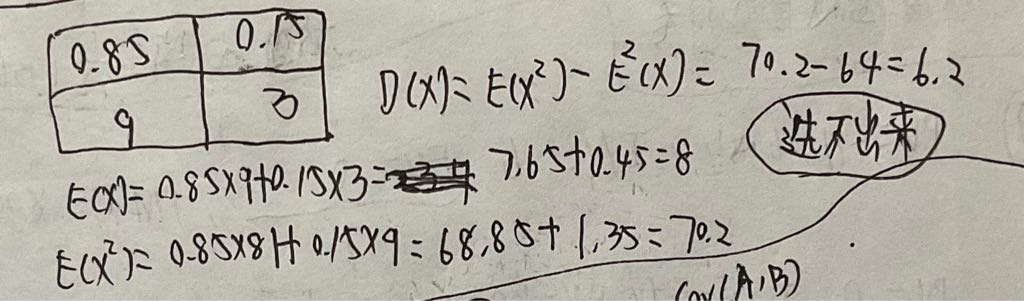 0.85 0.15
9 3
D(X)= E(X²)- E²(X)= 70.2-64=6.2
选不出来
E(X)= 0.85×9+0.15×3= 7.65+0.45=8
E(X²)= 0.85×81+0.15×9= 68.85+1.35=70.2
Cov(A,B)